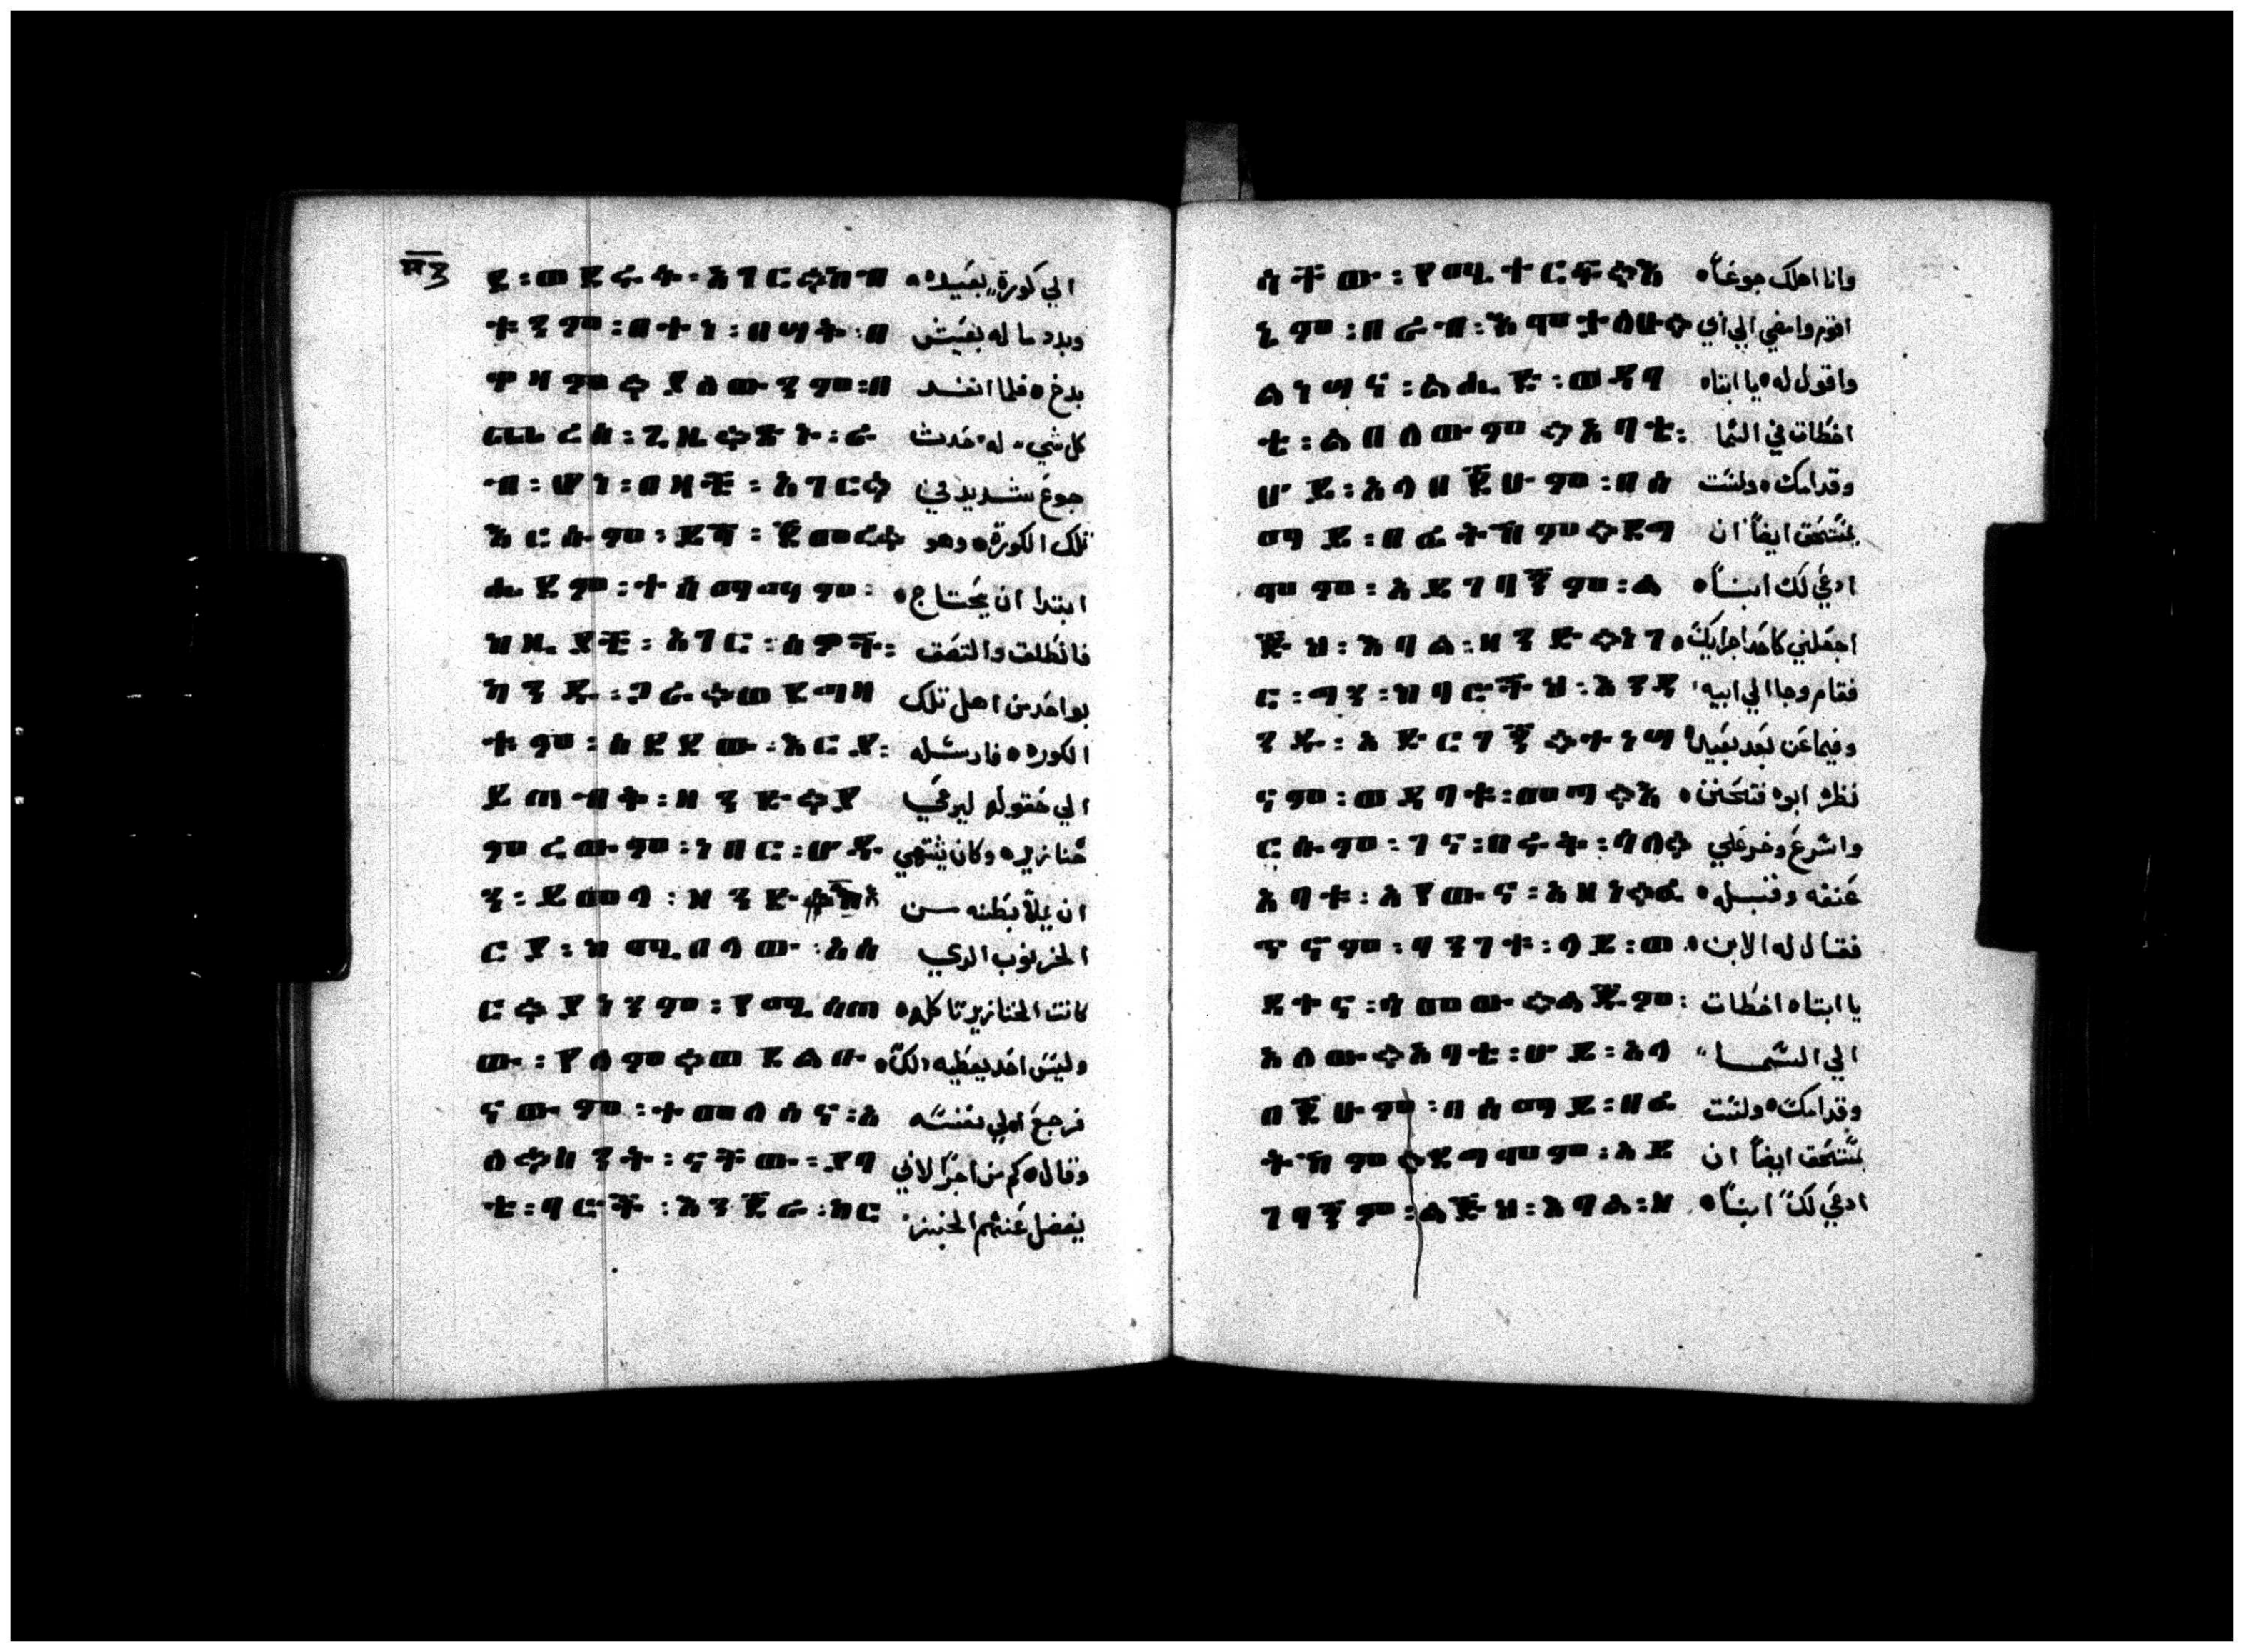 ፹፫
ድ፡ወደሩቅ፡አገር።ከብ الي كورة بعيده
ቱንም፡በተነ፡በሣቱ፡በ وبدد ما له بعيش
ቀዛም።ያለውንም፡በ بدخ ه فلما انفسد
ጨረሰ፡ጊዜ።ጽኑ፡ረ كل شي له حدث
ኀብ፡ሆነ፡በዚያች፡አገር። جوع شديد في
እርሱም፡ይሻ፡ጀመረ። تلك الكورة ه وهو
ሔደም፡ተሰማማም፡ ابتدا ان يحتاج ه
ከዚያች፡አገር፡ሰዎች፡ فانطلق والتصق
ካንዱ፡ጋራ።ወደማዛ بواحد من اهل تلك
ቱም፡ሰደደው፡እርያ፡ الكوره ه فارسله
ይጠብቅ፡ዘንድ።ያ الي حقوله ليرعي
ምረውም፡ነበር፡ሆዱ خنازيره وكان يشتهي
ን፡ይመላ፡ዘንድ። ان يملا بطنه من
ርያ፡ከሚበላው፡አሰ الخرنوب الدي
ር።ያንንም፡የሚሰጠ كانت الخنازير تاكله ه
ው፡የለም።ወደልቡ وليس احد يعطيه دلك ه
ናውም፡ተመለሰና፡አ فرجع الي نفسه
ለ።ስንቱ፡ናቸው፡ያባ وقال ه كم من اجرا لابي
ቴ፡ባሮች፡እንጀራ፡ከር يفضل عنهم الخبز
ሳቸው፡የሚተርፍ።እ وانا اهلك جوعاً ه
ኔም፡በራብ፡እሞታለሁ። اقوم وامضي الي ابي
ልነሣና፡ልሒድ፡ወዳባ واقول له ه يا ابتاه
ቴ፡ልበለውም።አባቴ፡ اخطات في السما
ሆይ፡አሳበጅሁም፡በሰ وقدامك ه ولست
ማይ፡በፊትህም።ደግ بمستحق ايضاً ان
ሞም፡አይገባኝም፡ል ادعي لك ابناً ه
ጅህ፡እባል፡ዘንድ።ነገ اجعلني كاحد اجرايك ه
ር፡ግን፡ከባሮችህ፡እንደ فقام وجا الي ابيه
ንዱ፡አድርገኝ።ተነሣ وفيما عن بعد بعيد
ናም፡ወዳባቱ፡መጣ።እ نظره ابوه فتحنن ه
ርሱም፡ገና፡በሩቁ፡ሳለ። واسرع وخر علي
አባቱ፡አየውና፡አዘነ።ፈ عنقه وقبله ه
ጥኖም፡ባንገቱ፡ላይ፡ወ فقال له الابن ه
ደቀና፡ሳመው።ልጁም፡ يا ابتاه اخطات
አለው።አባቴ፡ሆይ፡አሳ الي السما
በጅሁም፡በሰማይ፡በፊ وقدامك ه ولست
ትህም።ደግሞም፡አይ بمستحق ايضاً ان
ገባኝም፡ልጅህ፡እባል፡ዘ ادعي لك ابناً ه